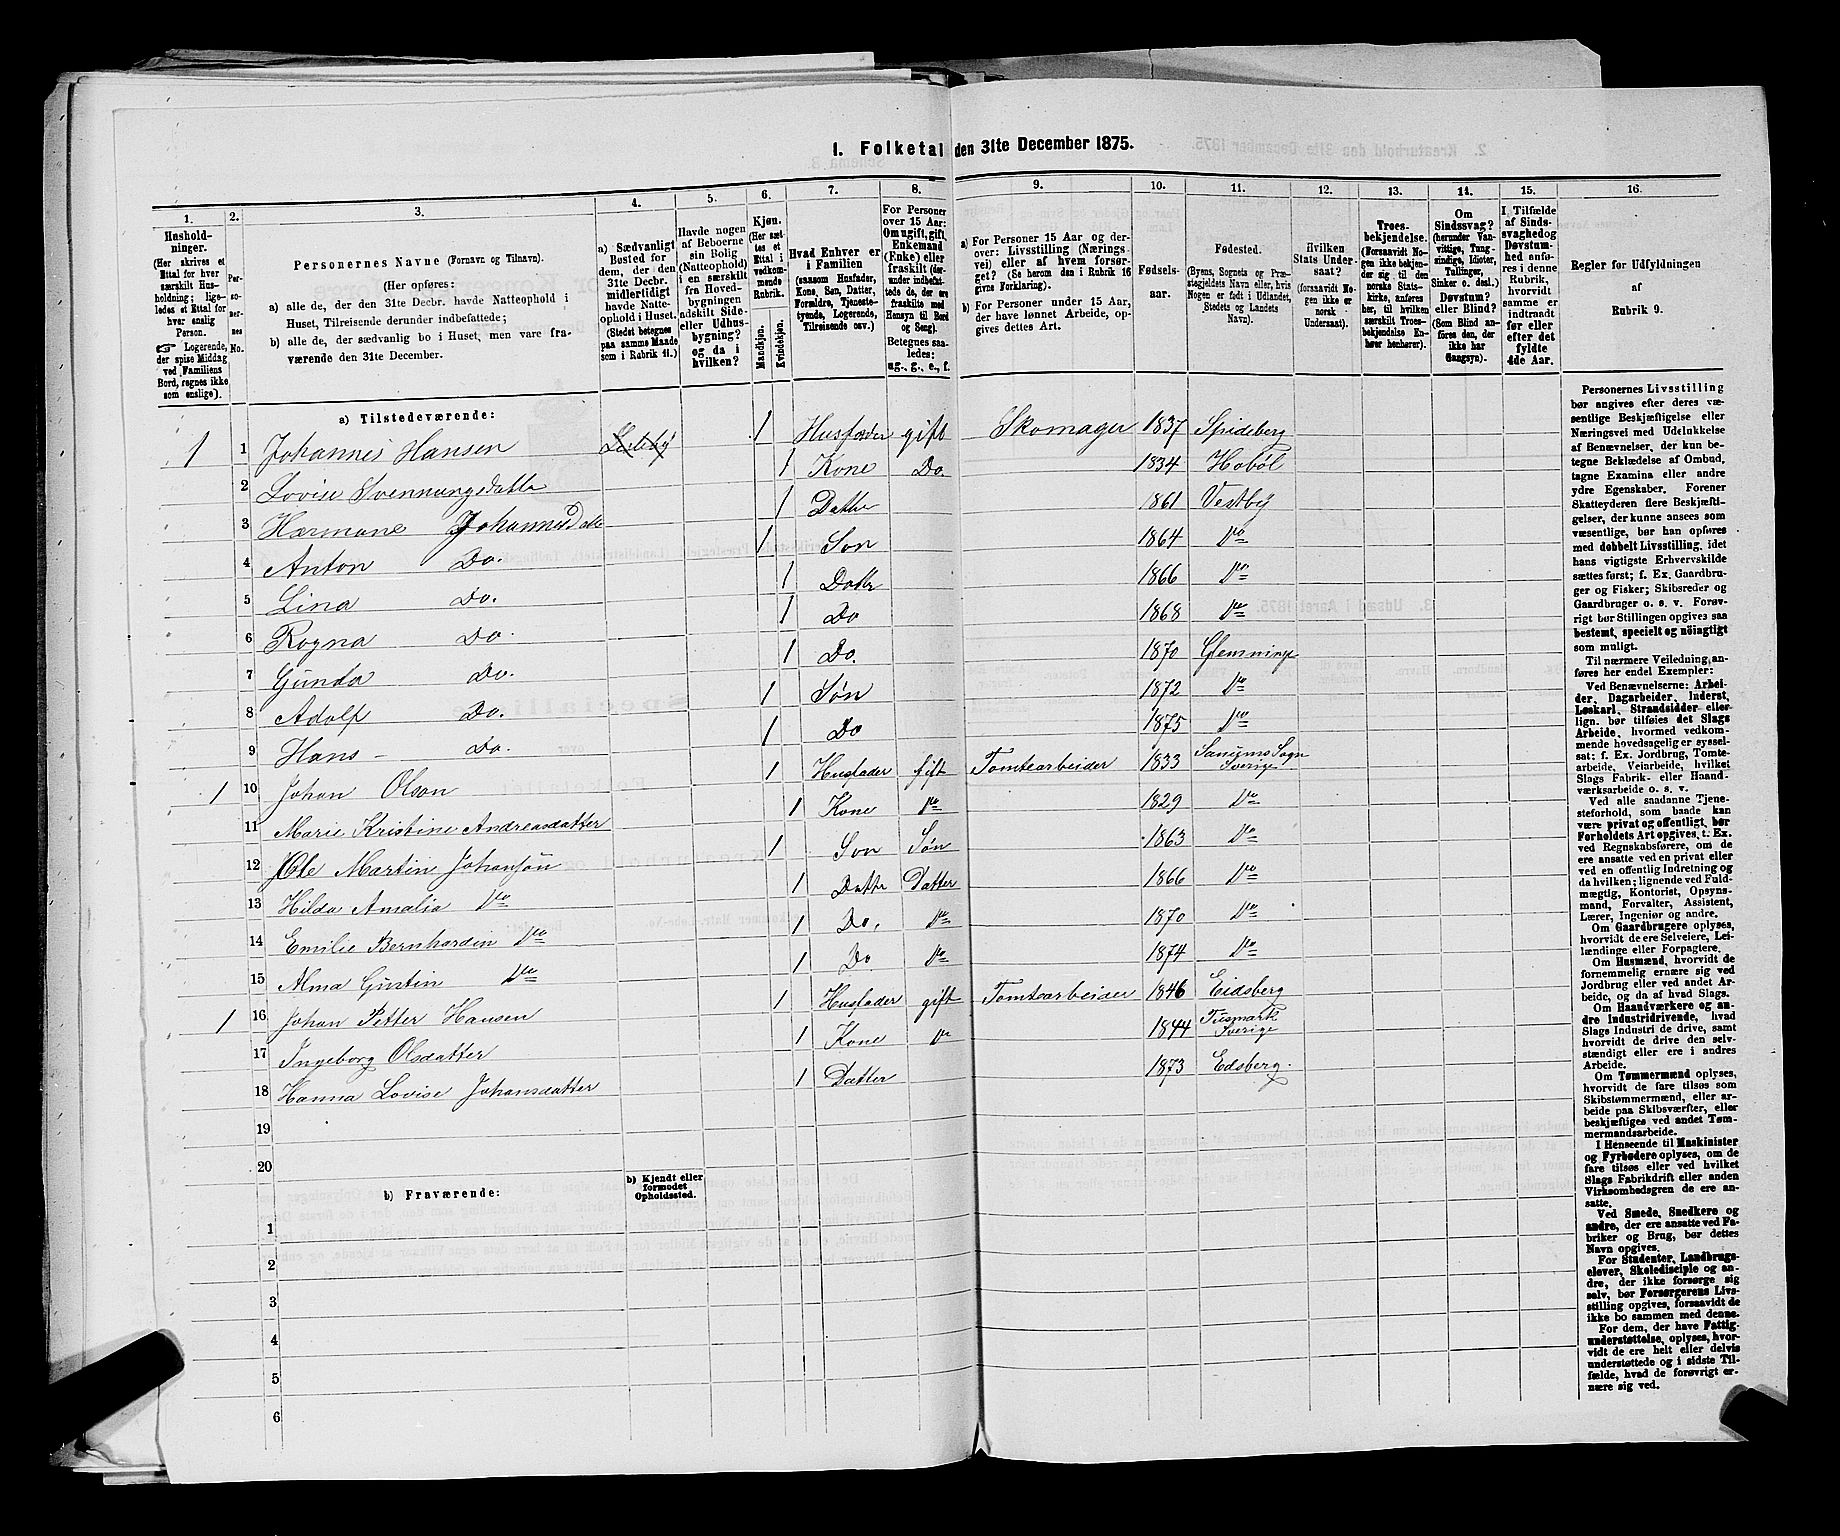 I. Folketal den 31te December 1875.
1. 2. 3. 4. 5. 6. 7. 8. 9. 10. 11. 12. 13. 14. 15. 16.
Husholdninger.
(Her skrives et
Ettal for hver
særskilt Husholdning;
ligeledes et Ettal for
hver enslig
Person.
☞ Logerende,
der spise Middag
ved Familiens
Bord, regnes ikke
som enslige).
Personernes No.
Personernes Navne (Fornavn og Tilnavn).
(Her opføres:
a) alle de, der den 31te Decbr. havde Natteophold i
Huset, Tilreisende derunder indbefattede;
b) alle de, der sædvanlig bo i Huset, men vare fraværende
den 31te December.
a) Sædvanligt
Bosted for
dem, der den
31te Decbr.
midlertidigt
havde Natteophold
i Huset.
(Stedet betegnes
paa samme Maade
som i Rubrik 11.)
Havde nogen
af Beboerne
sin Bolig
(Natteophold)
i en særskilt
fra Hovedbygningen
adskilt Side-
eller Udhusbygning?
og da i
hvilken?
Kjøn.
(Her sættes
et
Ettal i
vedkommende
Rubrik.
Mandkjøn.
Kvindekjøn.
Hvad Enhver er
i Familien
(saasom Husfader,
Kone, Søn, Datter,
Forældre, Tjenestetyende,
Logerende,
Tilreisende osv.)
For Personer
over 15 Aar:
Om ugift, gift,
Enkemand
(Enke) eller
fraskilt (derunder
indbefattede
de, der ere
fraskilte med
Hensyn til Bord
og Seng).
Betegnes saaledes:
ug., g., e., f.
a) For Personer 15 Aar og derover:
Livsstilling (Næringsvei)
eller af hvem forsørget?
(Se herom den i Rubrik 16
givne Forklaring).
b) For Personer under 15 Aar,
der have lønnet Arbeide, opgives
dettes Art.
Fødselsaar.
Fødested.
(Byens, Sognets og Præstegjeldets
Navn eller, hvis
Nogen er født i Udlandet,
Stedets og Landets
Navn).
Hvilken
Stats Undersaat?
(forsaavidt Nogen
ikke er
norsk
Undersaat).
Troesbekjendelse.
(Forsaavidt Nogen
ikke bekjender
sig til den
norske Statskirke,
anføres
her, til hvilken
særskilt Troesbekjendelse
Enhver
henhører).
Om
Sindssvag?
(herunder Vanvittige,
Tungsindige,
Idioter,
Tullinger,
Sinker o. desl.)
Døvstum?
eller Blind?
(Som Blind anføres
den, der
ikke har
Gangsyn).
I Tilfælde
af Sindssvaghed
og
Døvstumhed
anføres
i denne
Rubrik,
hvorvidt
samme er
indtraadt
før eller
efter det
fyldte
4de Aar.
Regler for Udfyldningen
af
Rubrik 9.
a) Tilstedeværende:
1 1 Johannes Hansen 1 Husfader gift Skomager 1837 Spideberg
2 Lovise Svennungsdatte 1 Kone Do 1834 Hobøl
3 Hærmane Johannesd 1 Datter 1861 Vestby
4 Anton Do. 1 Son 1864 Do
5 Lina Do. 1 Dattr 1866 Do
6 Rogna Do. 1 Do 1868 Do
7 Gunda Do. 1 Do. 1870 Glemminge
8 Adolf Do. 1 Søn 1872 Do
9 Hans – Do. 1 Do 1875 Do
1 10 Johan Olson 1 Husfader gift Tomtearbeider 1833 Sogn Sverige
11 Marie Kristine Andreasdatter 1 Kone Do 1829 Do
12 Ole Martin Johansøn 1 Son Søn 1863 Do
13 Hilda Amalia Do 1 Datter Datter 1866 Do
14 Emilie Bernhardin Do 1 Do. Do 1870 Do
15 Alma Gustin Do 1 Do Do 1874 Do
1 16 Johan Petter Hansen 1 Husfader gift Tomtearbeider 1846 Eidsberg
17 Ingeborg Olsdatter 1 Kone Do 1844 Sverige
18 Hanna Lovise Johansdatter 1 Datter 1873 Edsberg.
19
20
b) Fraværende:
b) Kjendt eller
formodet
Opholdssted.
1
2
3
4
5
6
Personernes Livsstilling
bør angives efter deres væsentlige
Beskjæftigelse eller
Næringsvei med Udelukkelse
af Benævnelser, der kun betegne
Beklædelse af Ombud,
tagne Examina eller andre
ydre Egenskaber. Forener
Skatteyderen flere Beskjæftigelser,
der kunne ansees som
væsentlige, bør han opføres
med dobbelt Livsstilling, idet
hans vigtigste Erhvervskilde
sættes først; f. Ex. Gaardbruger
og Fisker; Skibsreder og
Gaardbruger o. s. v. Forøvrigt
bør Stillingen opgives saa
bestemt, specielt og nøiagtigt
som muligt.
Til nærmere Veiledning anføres
her endel Exempler:
Ved Benævnelserne: Arbeider,
Dagarbeider, Inderst,
Løskarl, Strandsidder eller
lign. bør tilføies det Slags
Arbeide, hvormed vedkommende
hovedsagelig er sysselsat:
f. Ex. Jordbrug, Tomtearbeide,
Veiarbeide, hvilket
Slags Fabrik- eller Haandværksarbeide
o. s. v.
Ved alle saadanne Tjenesteforhold,
som baade kan
være privat og offentligt, bør
Forholdets Art opgives, t. Ex.
ved Regnskabsførere, om de
ere ansatte ved en privat eller
ved en offentlig Indretning og
da hvilken; lignende ved Fuldmægtig,
Kontorist, Opsynsmand,
Forvalter, Assistent,
Lærer, Ingeniør og andre.
Om Gaardbrugere oplyses,
hvorvidt de ere Selveiere, Leilændinge
eller Forpagtere.
Om Husmænd, hvorvidt de
fornemmelig ernære sig ved
Jordbrug eller ved andet Arbeide,
og da af hvad Slags.
Om Haandværkere og andre
Industridrivende, hvad
Slags Industri de drive, samt
hvorvidt de drive den selvstændigt
eller ere i andres
Arbeide.
Om Tømmermænd oplyses,
hvorvidt de fare tilsøs som
Skibstømmermænd, eller arbeide
paa Skibsværfter, eller
beskjæftiges ved andet Tømmermandsarbeide.
I Henseende til Maskinister
og Fyrbødere oplyses, om de
fare tilsøs eller ved hvilket
Slags Fabrikdrift eller anden
Virksomhedsgren de ere ansatte.
Ved Smede, Snedkere og
andre, der ere ansatte ved Fabriker
og Brug, bør dettes
Navn opgives.
For Studenter, Landbrugselever,
Skoledisciple og andre,
der ikke forsørge sig
selv, bør Forsørgerens Livsstilling
opgives, forsaavidt de
ikke bo sammen med denne.
For dem, der have Fattigunderstøttelse,
oplyses, hvorvidt
de ere helt eller delvis
understøttede og i sidste Tilfælde,
hvad de forøvrigt ernære
sig ved.